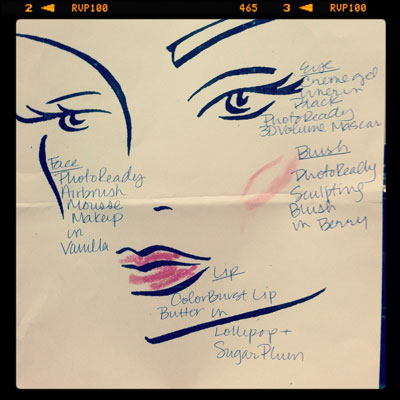 2 ◄ RVP100 465 3 ◄ RVP100
Eye
Creme gel
liner in
Black
PhotoReady
3D Volume Mascar
Blush
PhotoReady
Sculpting
Blush
in Berry
Face
PhotoReady
Airbrush
Mousse
Makeup
in
Vanilla
Lip
ColorBurst Lip
Butter in
Lollipop +
SugarPlum